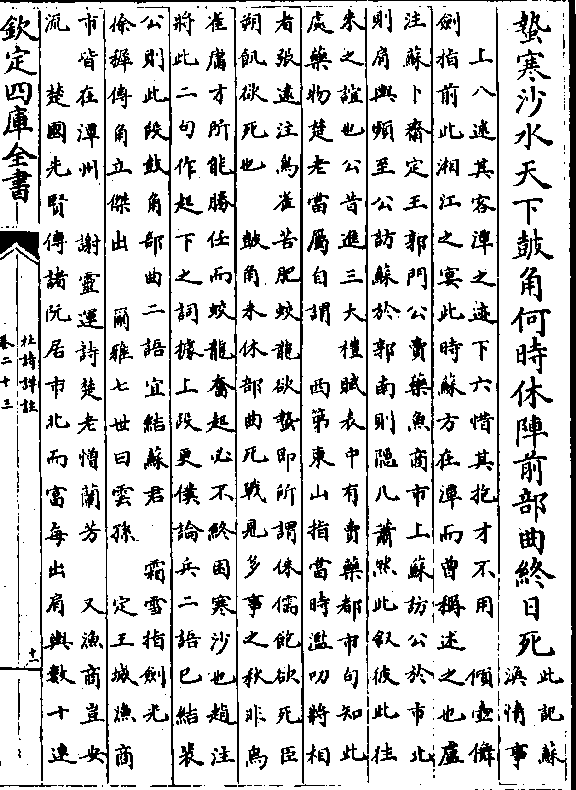 蟄寒沙水天下鼓角何時休陣前部曲終日死此記蘇
渙情事
上八述其客潭之迹下六惜其抱才不用　傾壺儛
劍指前此湘江之宴此時蘇方在潭而曾稱述之也盧
注蘇卜齋定王郭門公賣藥魚商市上蘇訪公於市北
則肩輿頻至公訪蘇於郭南則隱几蕭然此叙彼此往
來之誼也公昔進三大禮賦表中有賣藥都市句知此
處藥物楚老當屬自謂　西第東山指當時濫叨將相
者張遠注烏雀苦肥蛟龍欲蟄即所謂侏儒飽欲死臣
朔飢欲死也　鼓角未休部曲死戰見多事之秋非烏
雀庸才所能勝任而蛟龍奮起必不終困寒沙也趙注
將此二句作起下之詞據上段更僕論兵二語已結裴
公則此段鼓角部曲二語宜結蘇君　霜雪指劍光
徐穉傳角立傑出　爾雅七世曰雲孫　定王城漁商
市皆在潭州　謝靈運詩楚老憎蘭芳　又漁商豈安
流　楚國先賢傳諸阮居市北而富每出肩輿數十連
欽定四庫全書
杜詩詳註
卷二十三
十一